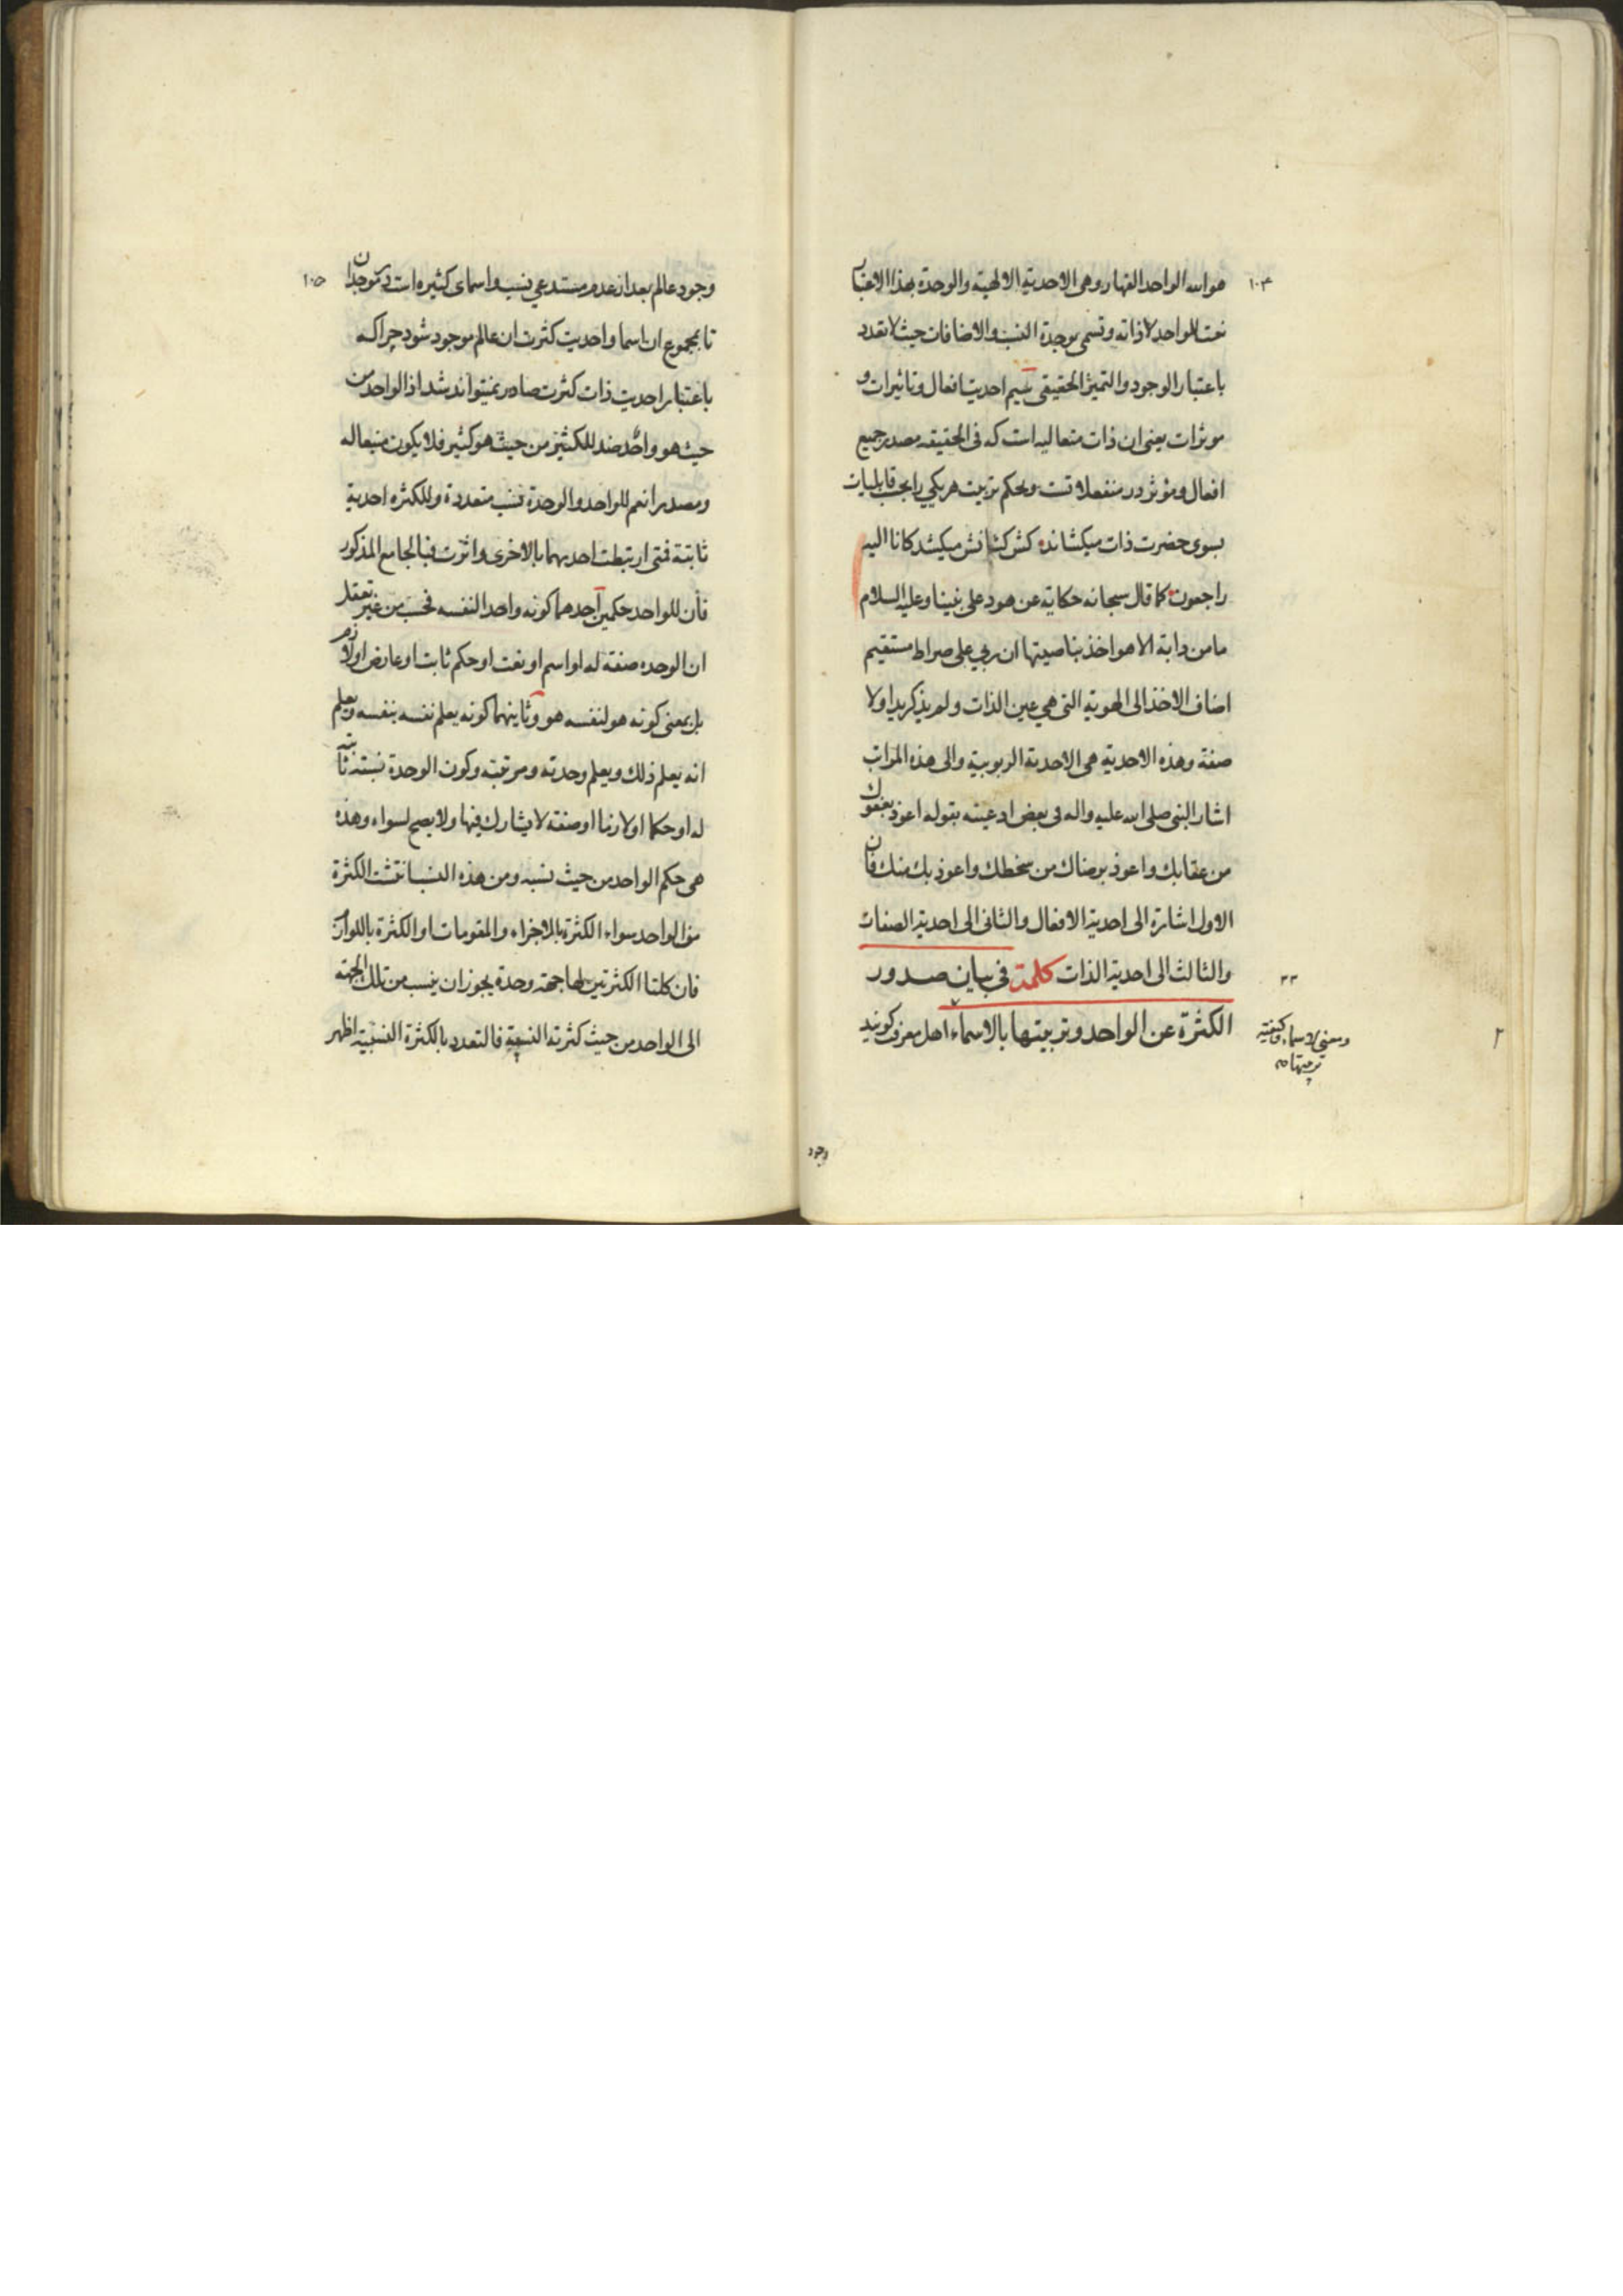 ١٠٤
هو الله الواحد القهار وهى الاحدية الالهية والوحدة بهذا الاعتبار
نعت للواحد لا ذاته وتسمى بوحدة النسب والاضافات حيث لا تعدد
باعتبار الوجود والتميز الحقيقى سيم احديت افعال وتاثيرات و
موثرات يعنى ان ذات متعاليه است كه فى الحقيقه مصدر جميع
افعال ومؤثر در منفعلاتست وبحكم تربيت هر يكي را بحسب قابليات
بسوى حضرت ذات ميكشاند كش كشانش ميكشد كانا اليه
راجعون كما قال سبحانه حكاية عن هود على نبينا وعليه السلام
ما من دابة الا هو اخذ بناصيتها ان ربي على صراط مستقيم
اضاف الاخذ الى الهوية التى هي عين الذات ولم يذكر يدا ولا
صفة وهذه الاحدية هى الاحدية الربوبية والى هذه المراتب
اشار النبى صلى الله عليه واله فى بعض ادعيته بقوله اعوذ بعفوك
من عقابك واعوذ برضاك من سخطك واعوذ بك منك فان
الاول اشارة الى احدية الافعال والثانى الى احدية الصفات
٣٣
والثالث الى احدية الذات كلمة في بيان صدور
الكثرة عن الواحد وتربيتها بالاسماء اهل معرفت كويند
ومعنى الاسماء وكيفية
تربيتها
٢
وجود
١٠٥
وجود عالم بعد از عدم مستدعي نسب واسماى كثيره است در موجد ان
تا بمجموع ان اسما واحديت كثرت ان عالم موجود شود چرا كه
باعتبار احديت ذات كثرت صادر نميتواند شد اذ الواحد من
حيث هو واحد ضد للكثير من حيث هو كثير فلا يكون منبعا له
ومصدرا نعم للواحد والوحدة نسب متعددة وللكثره احدية
ثابتة فمتى ارتبطت احديهما بالاخرى واثرت فبالجامع المذكور
فان للواحد حكمين احدهما كونه واحدا لنفسه فحسب من غير تعقل
ان الوحده صفة له او اسم او نعت او حكم ثابت او عارض او لازم
بل بمعنى كونه هو لنفسه هو وثانيهما كونه يعلم نفسه بنفسه ويعلم
انه يعلم ذلك ويعلم وحدته ومرتبته وكون الوحدة نسبة ثابتة
له او حكما او لازما او صفة لا يشارك فيها ولا يصح لسواه وهذه
هى حكم الواحد من حيث نسبه ومن هذه النسب انتشت الكثرة
من الواحد سواء الكثرة بالاجزاء والمقومات او الكثرة باللوازم
فان كلتا الكثرتين لها جهة وحدة يجوز ان ينسب من تلك الجهة
الى الواحد من حيث كثرته النسبية فالتعدد بالكثرة النسبية اظهر